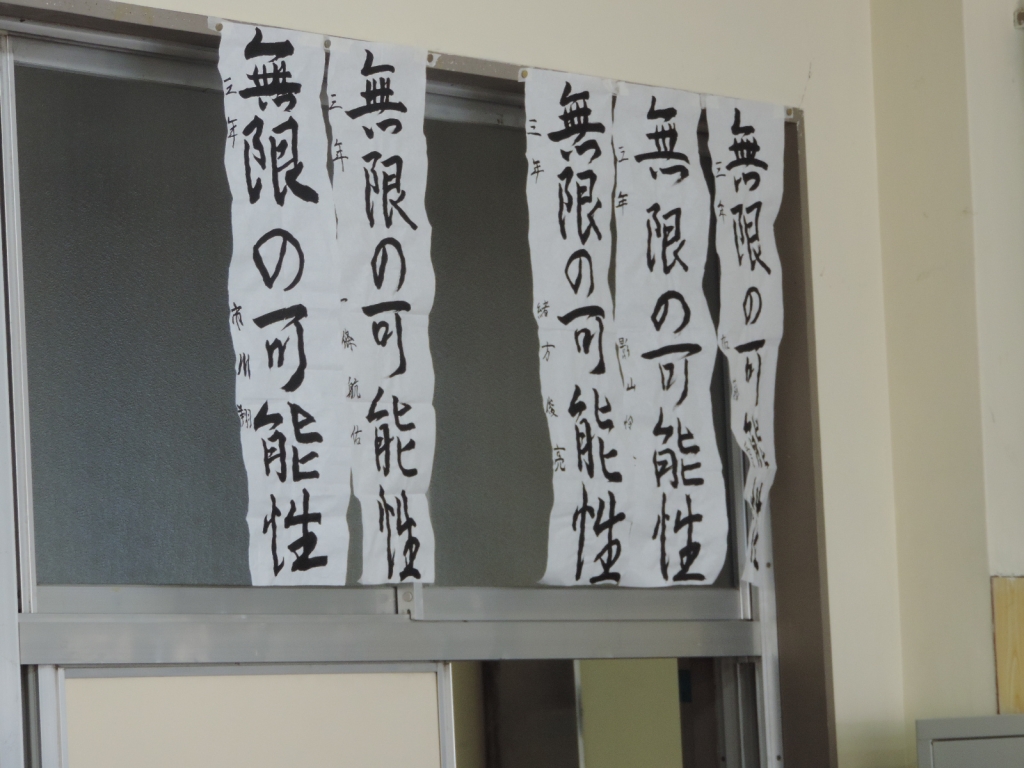 無限の可能性
三年
影山
無限の可能性
三年
緒方俊亮
無限の可能性
三年
無限の可能性
三年
航佑
無限の可能性
三年
市川翔